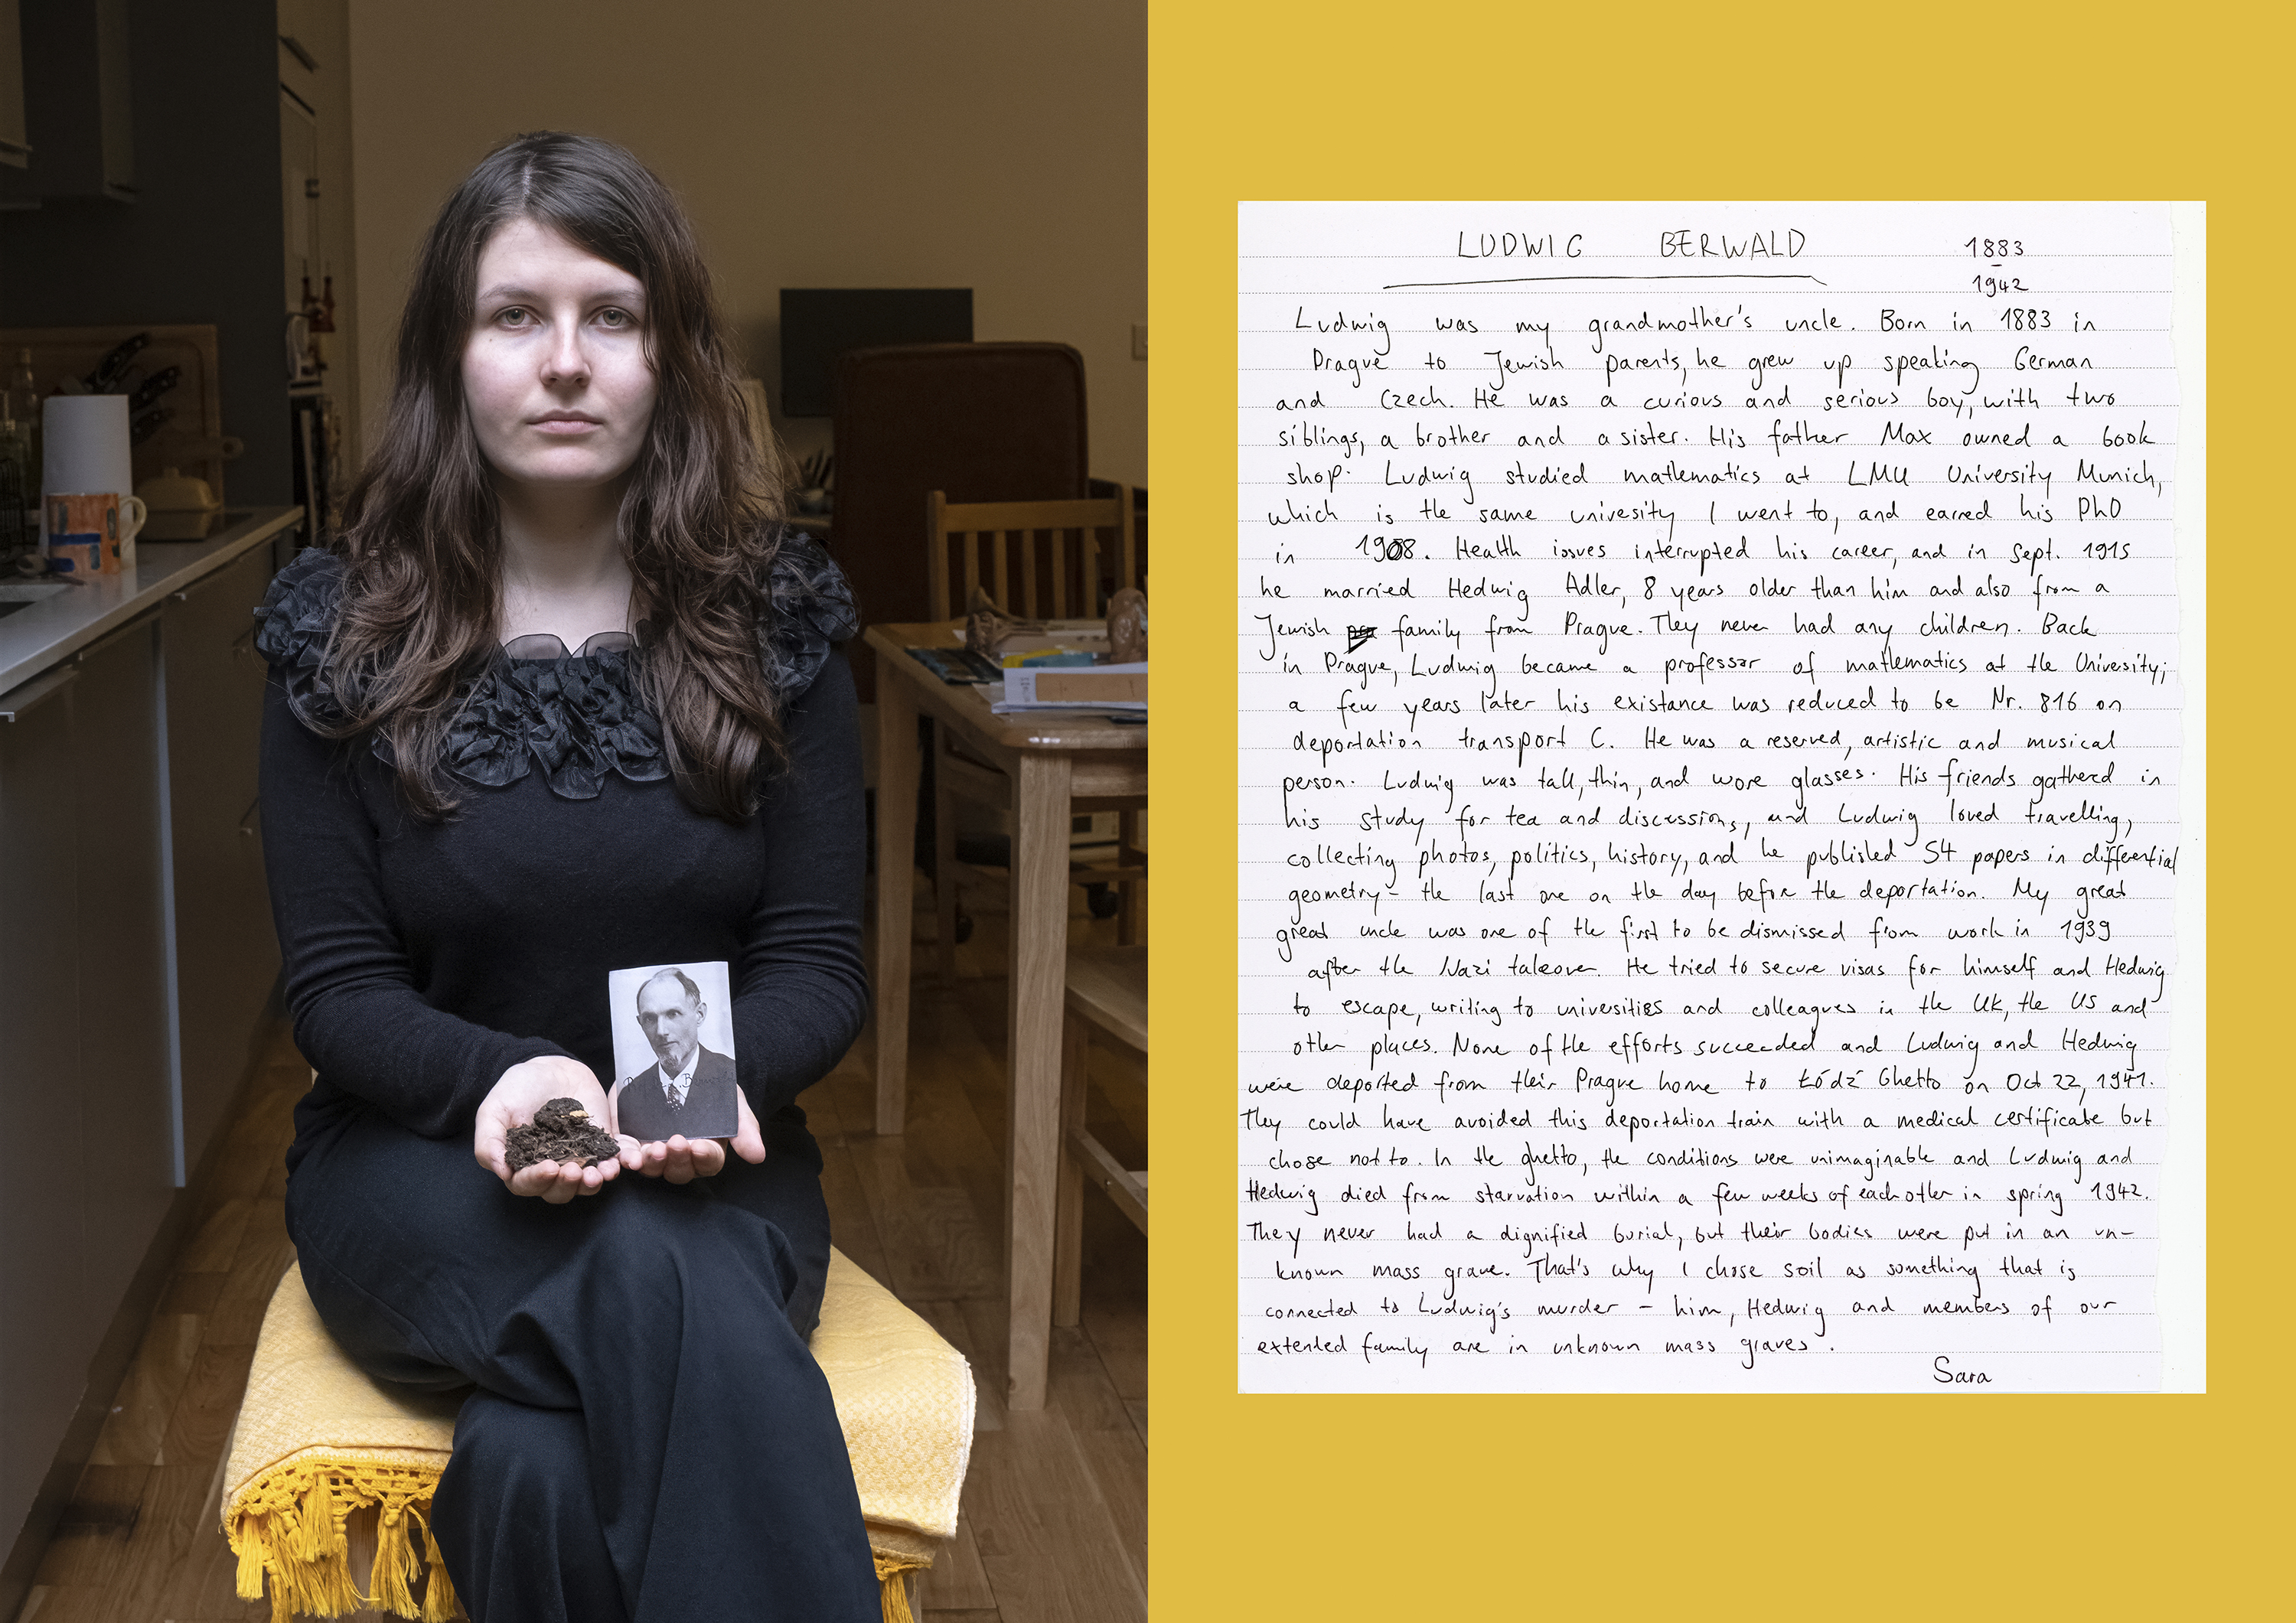 LUDWIG BERWALD 1883
–
1942
Ludwig was my grandmother's uncle. Born in 1883 in
Prague to Jewish parents, he grew up speaking German
and Czech. He was a curious and serious boy, with two
siblings, a brother and a sister. His father Max owned a book
shop. Ludwig studied mathematics at LMU University Munich,
which is the same univesity I went to, and earned his PhD
in 1908. Health issues interrupted his career, and in Sept. 1915
he married Hedwig Adler, 8 years older than him and also from a
Jewish family from Prague. They never had any children. Back
in Prague, Ludwig became a professor of mathematics at the University;
a few years later his existance was reduced to be Nr. 816 on
deportation transport C. He was a reserved, artistic and musical
person. Ludwig was tall, thin, and wore glasses. His friends gathered in
his study for tea and discussions, and Ludwig loved travelling,
collecting photos, politics, history, and he published 54 papers in differential
geometry - the last one on the day before the deportation. My great
great uncle was one of the first to be dismissed from work in 1939
after the Nazi takeover. He tried to secure visas for himself and Hedwig
to escape, writing to universities and colleagues in the UK, the US and
other places. None of the efforts succeeded and Ludwig and Hedwig
were deported from their Prague home to Łódź Ghetto on Oct 22, 1941.
They could have avoided this deportation train with a medical certificate but
chose not to. In the ghetto, the conditions were unimaginable and Ludwig and
Hedwig died from starvation within a few weeks of each other in spring 1942.
They never had a dignified burial, but their bodies were put in an un-
known mass grave. That's why I chose soil as something that is
connected to Ludwig's murder - him, Hedwig and members of our
extended family are in unknown mass graves.
Sara